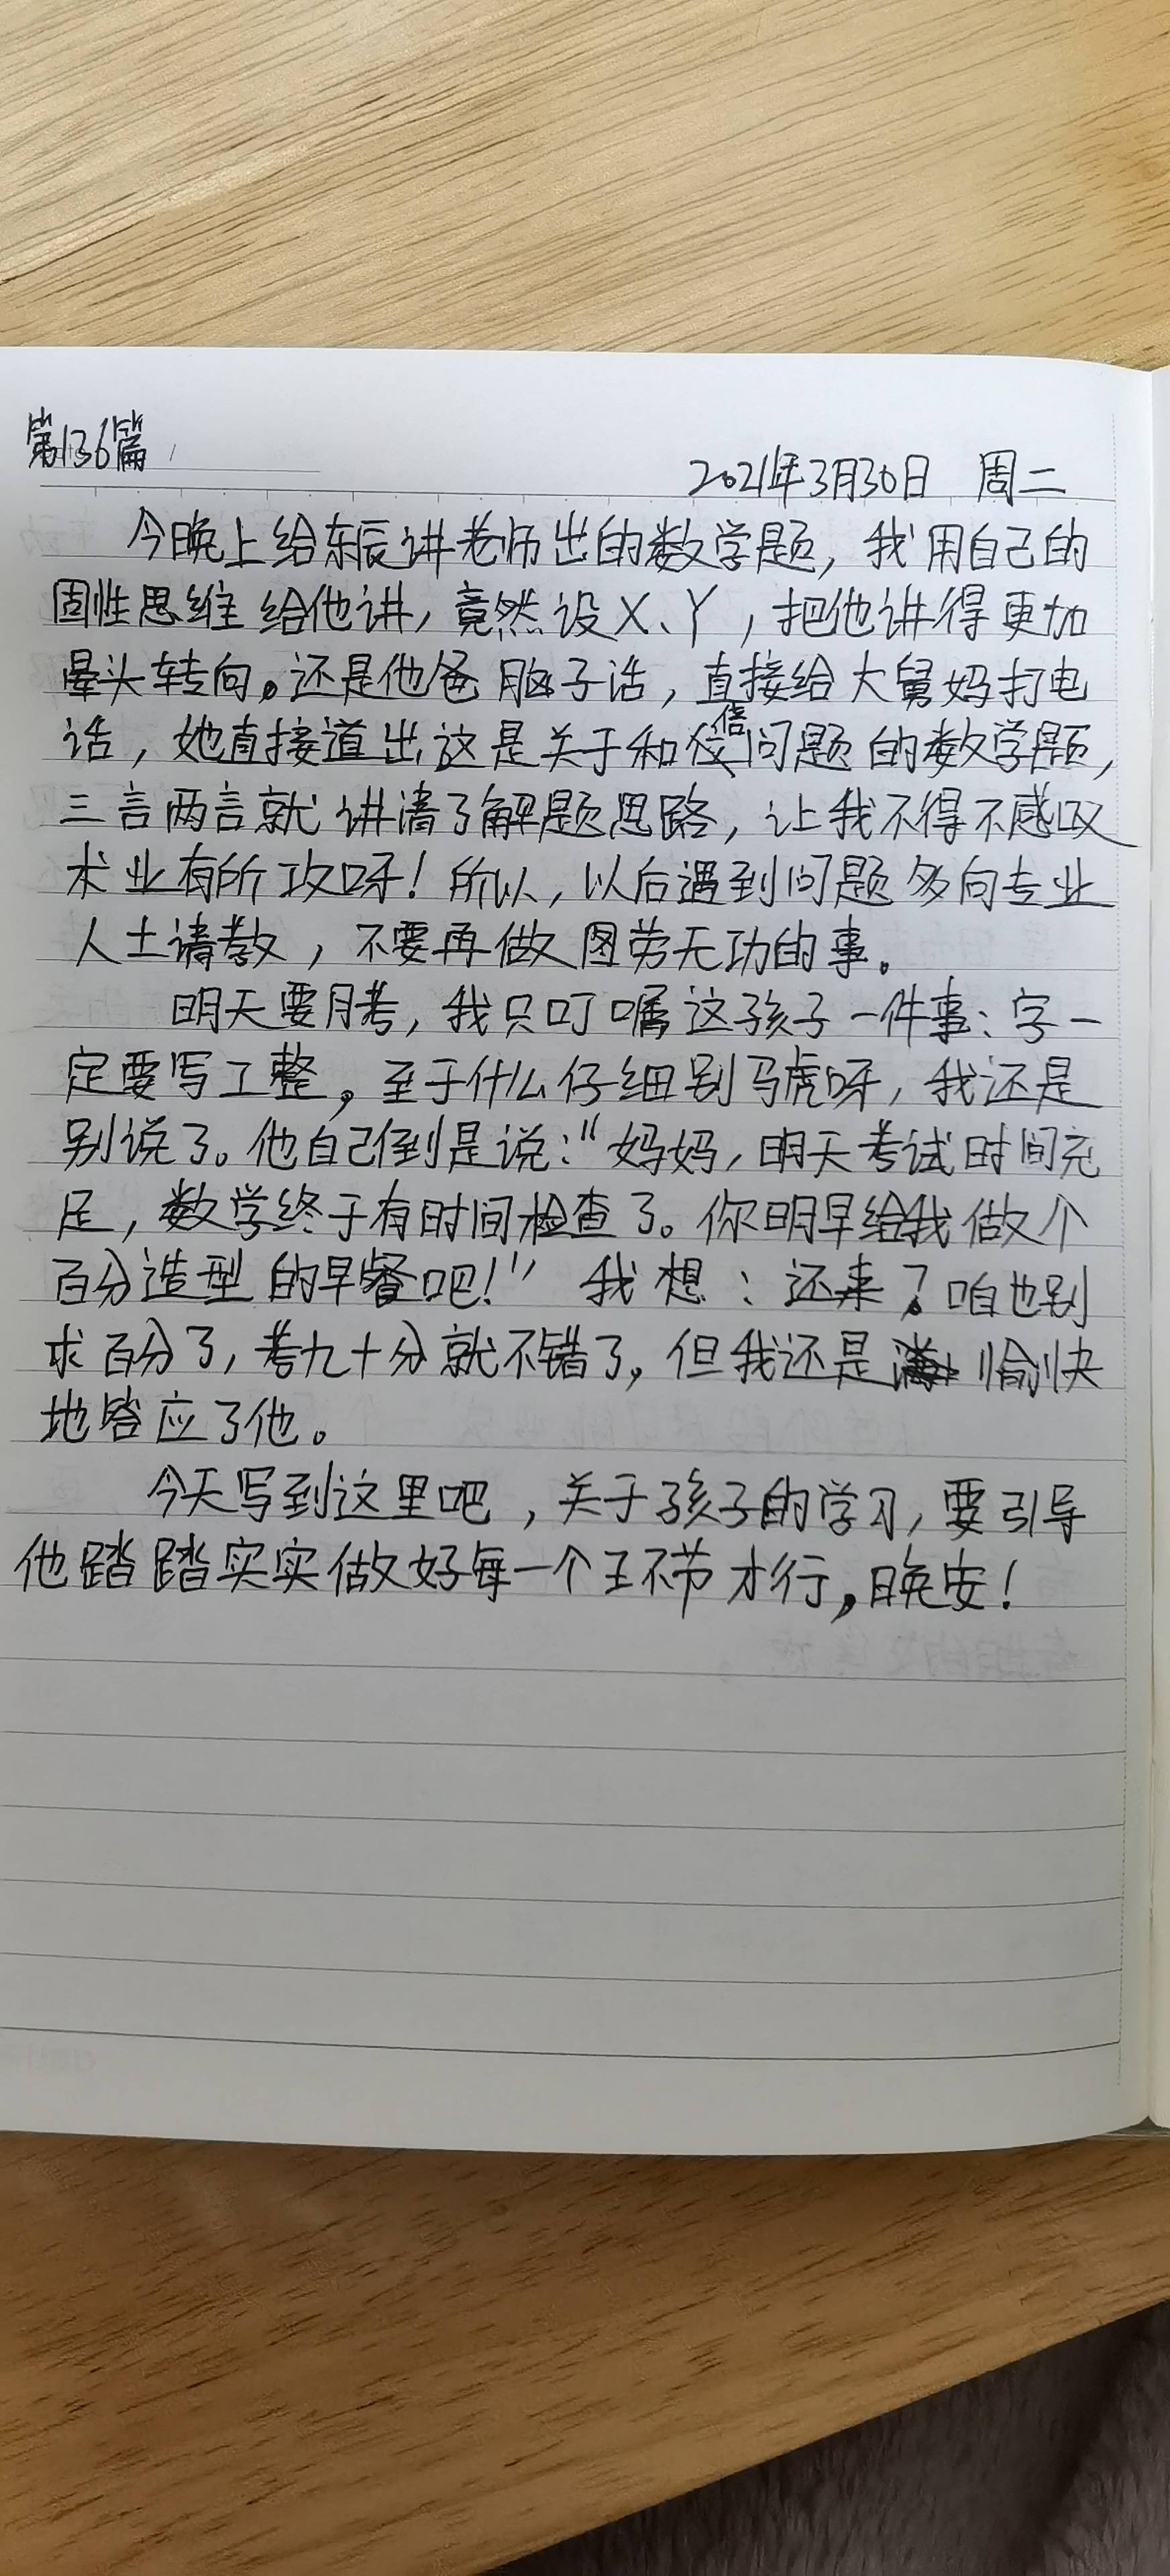 第136篇
2021年3月30日 周二
今晚上给东辰讲老师出的数学题，我用自己的
固性思维给他讲，竟然设X、Y，把他讲得更加
晕头转向。还是他爸脑子活，直接给大舅妈打电
话，她直接道出这是关于和倍问题的数学题，
三言两言就讲清了解题思路，让我不得不感叹
术业有所攻呀！所以，以后遇到问题多向专业
人士请教，不要再做图劳无功的事。
明天要月考，我只叮嘱这孩子一件事：字一
定要写工整。至于什么仔细别马虎呀，我还是
别说了。他自己倒是说：“妈妈，明天考试时间充
足，数学终于有时间检查了。你明早给我做个
百分造型的早餐吧！” 我想：还来？咱也别
求百分了，考九十分就不错了。但我还是愉快
地答应了他。
今天写到这里吧，关于孩子的学习，要引导
他踏踏实实做好每一个环节才行，晚安！